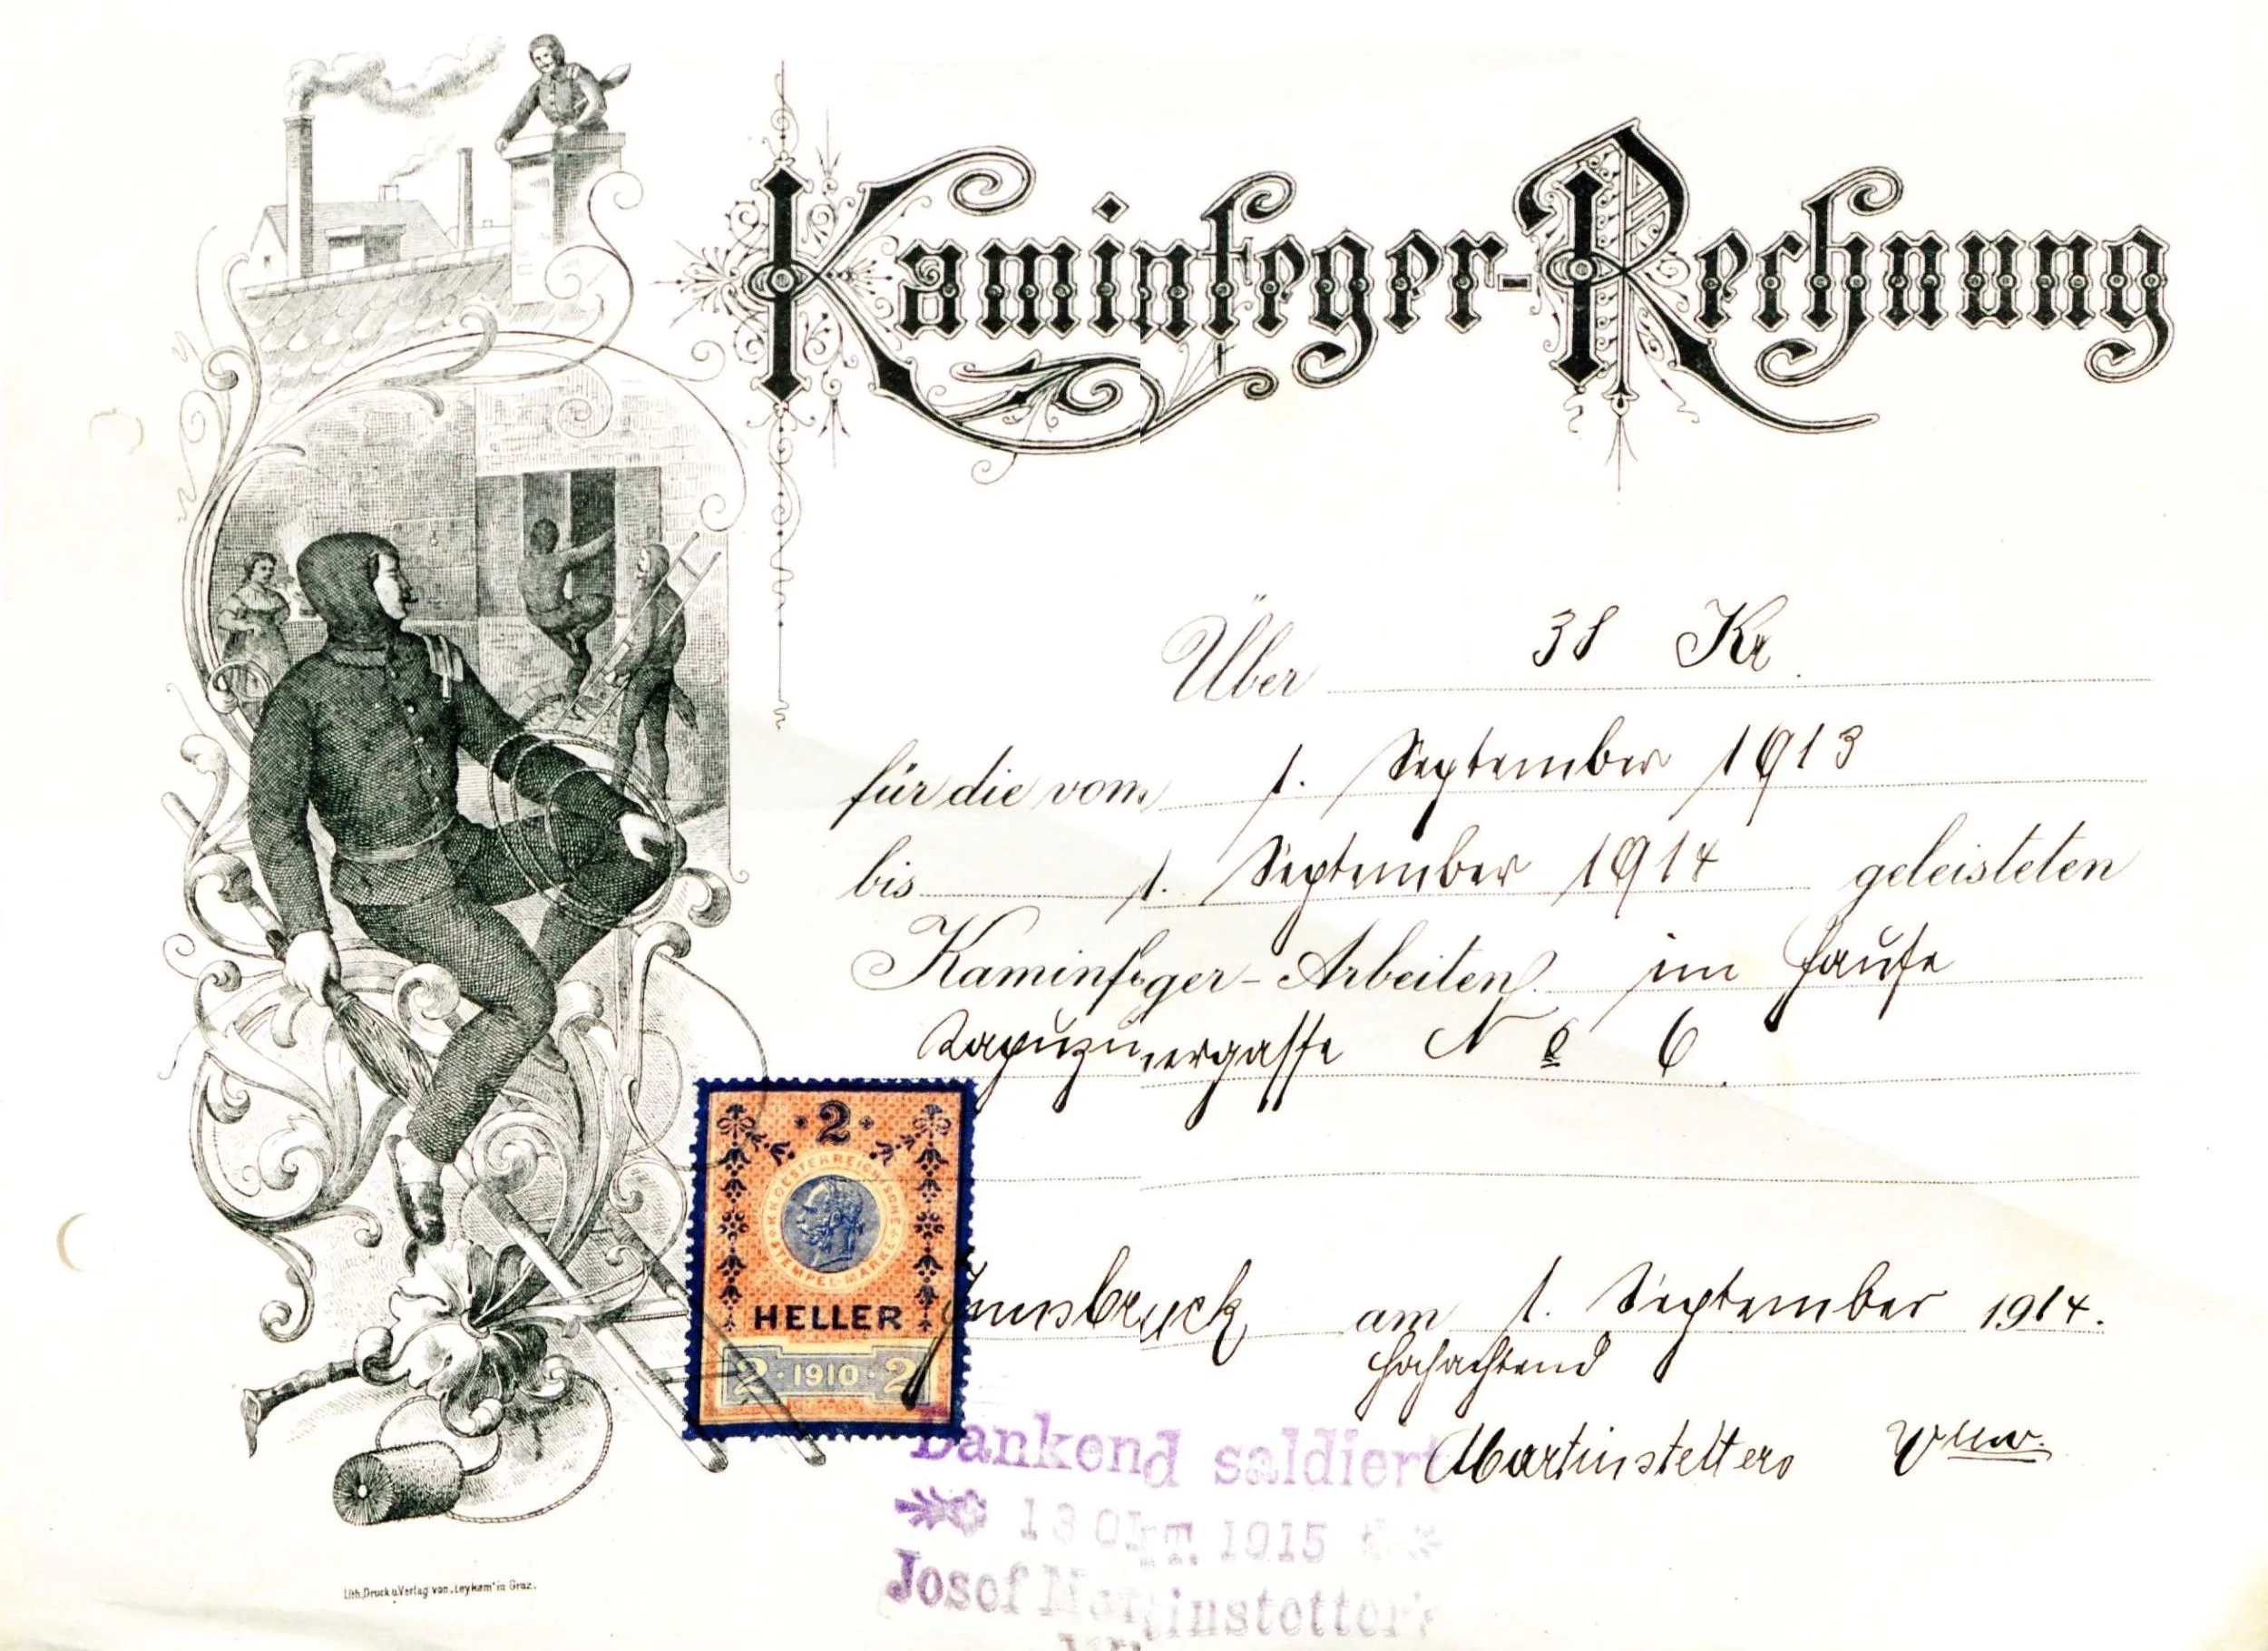 Kaminfeger-Rechnung
Über 38 Kr
für die vom 1. September 1913
bis 1. September 1914 geleisteten
Kaminfeger-Arbeiten im Hause
Kapuzinergasse No 6
2
K.K. OESTERREICHISCHE STEMPEL-MARKE
HELLER
2 · 1910 · 2
Innsbruck am 1. September 1914.
Hochachtend
Martinstetters Wwe.
Dankend saldiert
13 OKT. 1915
Josef Martinstetter's
Lith. Druck u. Verlag von „Leykam“ in Graz.